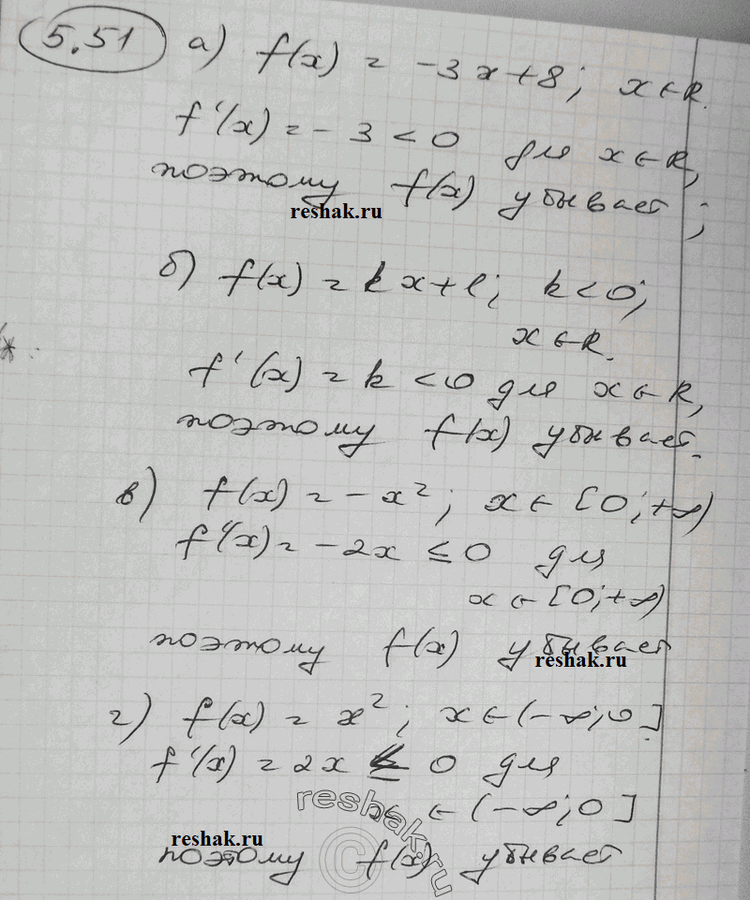 5.51 а) f(x) = -3x+8; x∈R.
f'(x) = -3 < 0 для x∈R,
поэтому f(x) убывает;
reshak.ru
б) f(x) = kx+l; k<0;
x∈R.
f'(x) = k < 0 для x∈R,
поэтому f(x) убывает.
в) f(x) = -x²; x∈[0;+∞)
f'(x) = -2x ≤ 0 для
x∈[0;+∞)
поэтому f(x) убывает
reshak.ru
г) f(x) = x²; x∈(-∞;0].
f'(x) = 2x ≤ 0 для
x∈(-∞;0]
reshak.ru
reshak.ru
поэтому f(x) убывает